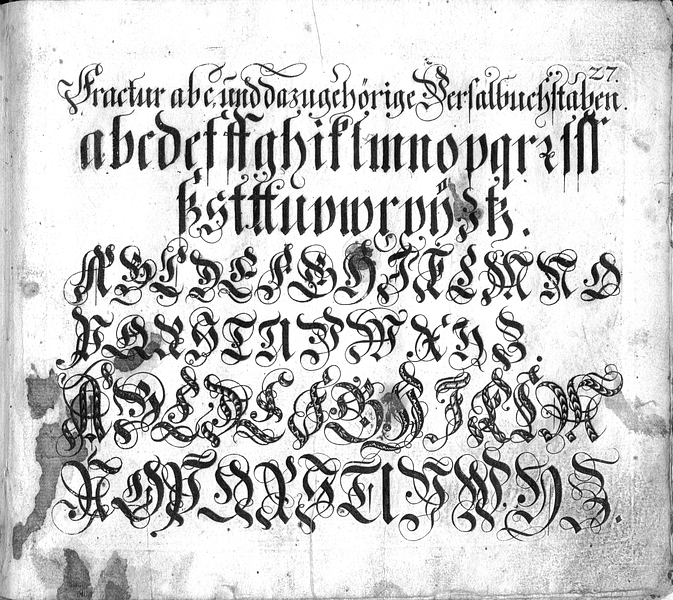 27.
Fractur abc, und dazugehörige Versalbuchstaben.
abcdefffghiklmnopqrꝛſſſ
ßstfftuvwxyÿztz.
A B C D E F G H I K L M N O
P Q R S T U V W X Y Z.
A B C D E F G H I K L M
N O P Q R S T U V W Y Z.